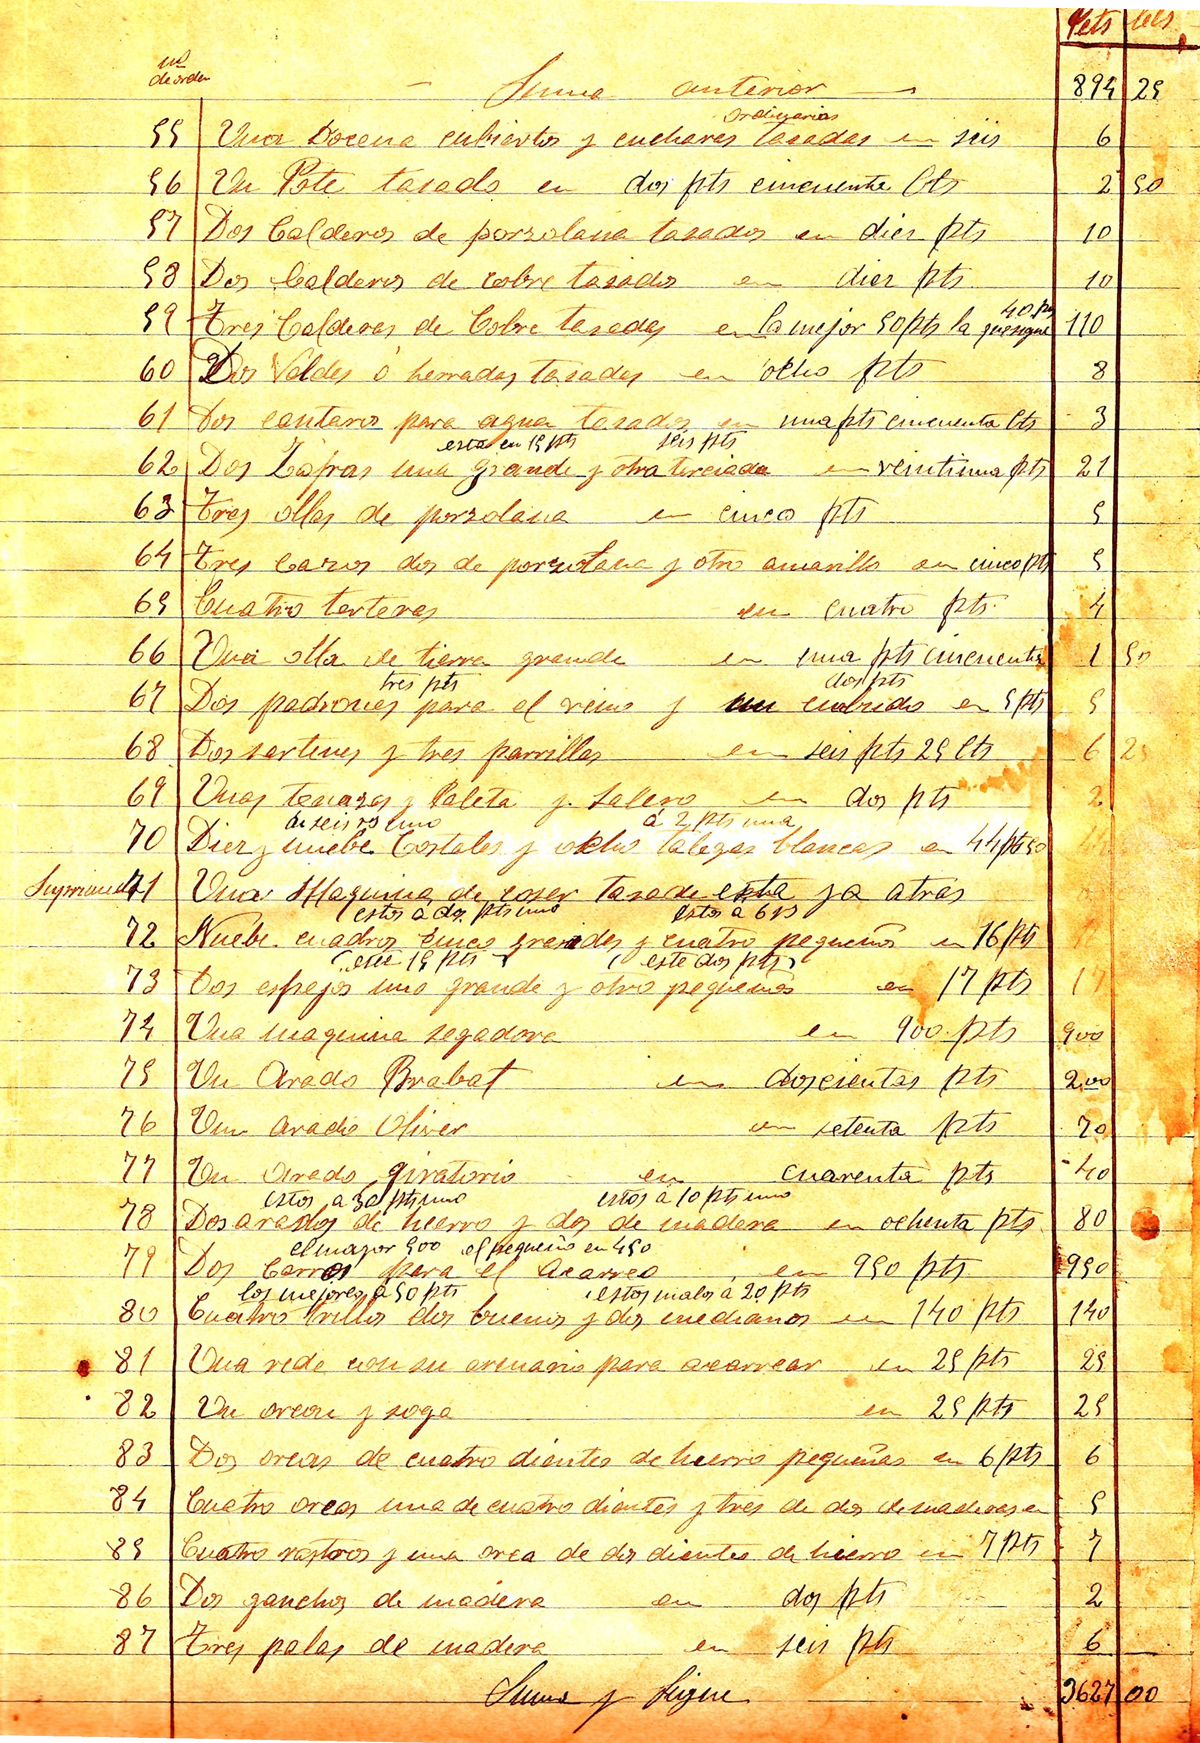 Pets Cts
nº
de orden
Suma anterior 894 25
ordinarias
55 Una Docena cubiertos y cucharas tasadas en seis 6
56 Un Pote tasado en dos pts cincuenta Cts 2 50
57 Dos Calderos de porzolana tasados en diez pts 10
58 Dos Calderos de cobre tasados en diez pts 10
40 pts
59 Tres Calderas de Cobre tasadas en la mejor 50 pts la que sigue 110
60 Dos Valdes ó herradas tasadas en ocho pts 8
61 Dos cantaros para agua tasados en una pts cincuenta Cts 3
esta en 15 pts seis pts
62 Dos Zafras una grande y otra terciada en veintiuna pts 21
63 Tres ollas de porzolana en cinco pts 5
64 Tres cazos dos de porzolana y otro amarillo en cinco pts 5
65 Cuatro terteras en cuatro pts. 4
66 Una olla de tierra grande en una pts cincuenta 1 50
tres pts dos pts
67 Dos padrones para el vino y un embudo en 5 pts 5
68 Dos sartenes y tres parrillas en seis pts 25 Cts 6 25
69 Unas tenazas y Paleta y Salero en dos pts 2
á seis rs uno á 2 pts una
70 Diez y nuebe Costales y ocho talegas blancas en 44 pts 50 44
71 Una Maquina de coser tasada esta ya atras
estos a dos pts uno estos á 6 rs
72 Nuebe cuadros cinco grandes y cuatro pequeños en 16 pts 16
(este 15 pts) (este dos pts)
73 Dos espejos uno grande y otro pequeños en 17 pts 17
74 Una maquina segadora en 900 pts 900
75 Un Arado Brabat en doscientas pts 200
76 Un arado Oliver en setenta pts 70
77 Un arado giratorio en cuarenta pts 40
estos a 30 pts uno estos á 10 pts uno
78 Dos arados de hierro y dos de madera en ochenta pts 80
el mayor 500 el pequeño en 450
79 Dos Carros para el Acarreo en 950 pts 950
los mejores á 50 pts estos malos á 20 pts
80 Cuatro trillos dos buenos y dos medianos en 140 pts 140
81 Una rede con su armario para acarrear en 25 pts 25
82 Un orcon y soga en 25 pts 25
83 Dos orcas de cuatro dientes de hierro pequeñas en 6 pts 6
84 Cuatro orcas una de cuatro dientes y tres de dos de maderas en 5
85 Cuatro rastros y una orca de dos dientes de hierro en 7 pts 7
86 Dos ganchos de madera en dos pts 2
87 Tres palas de madera en seis pts 6
Suma y Sigue 3627 00